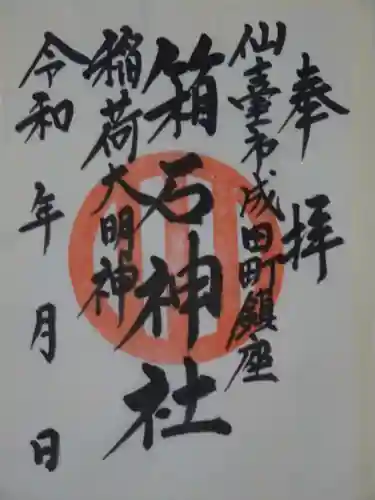 奉拝
仙臺市成田町鎮座
箱石神社
稲荷大明神
令和 年 月 日